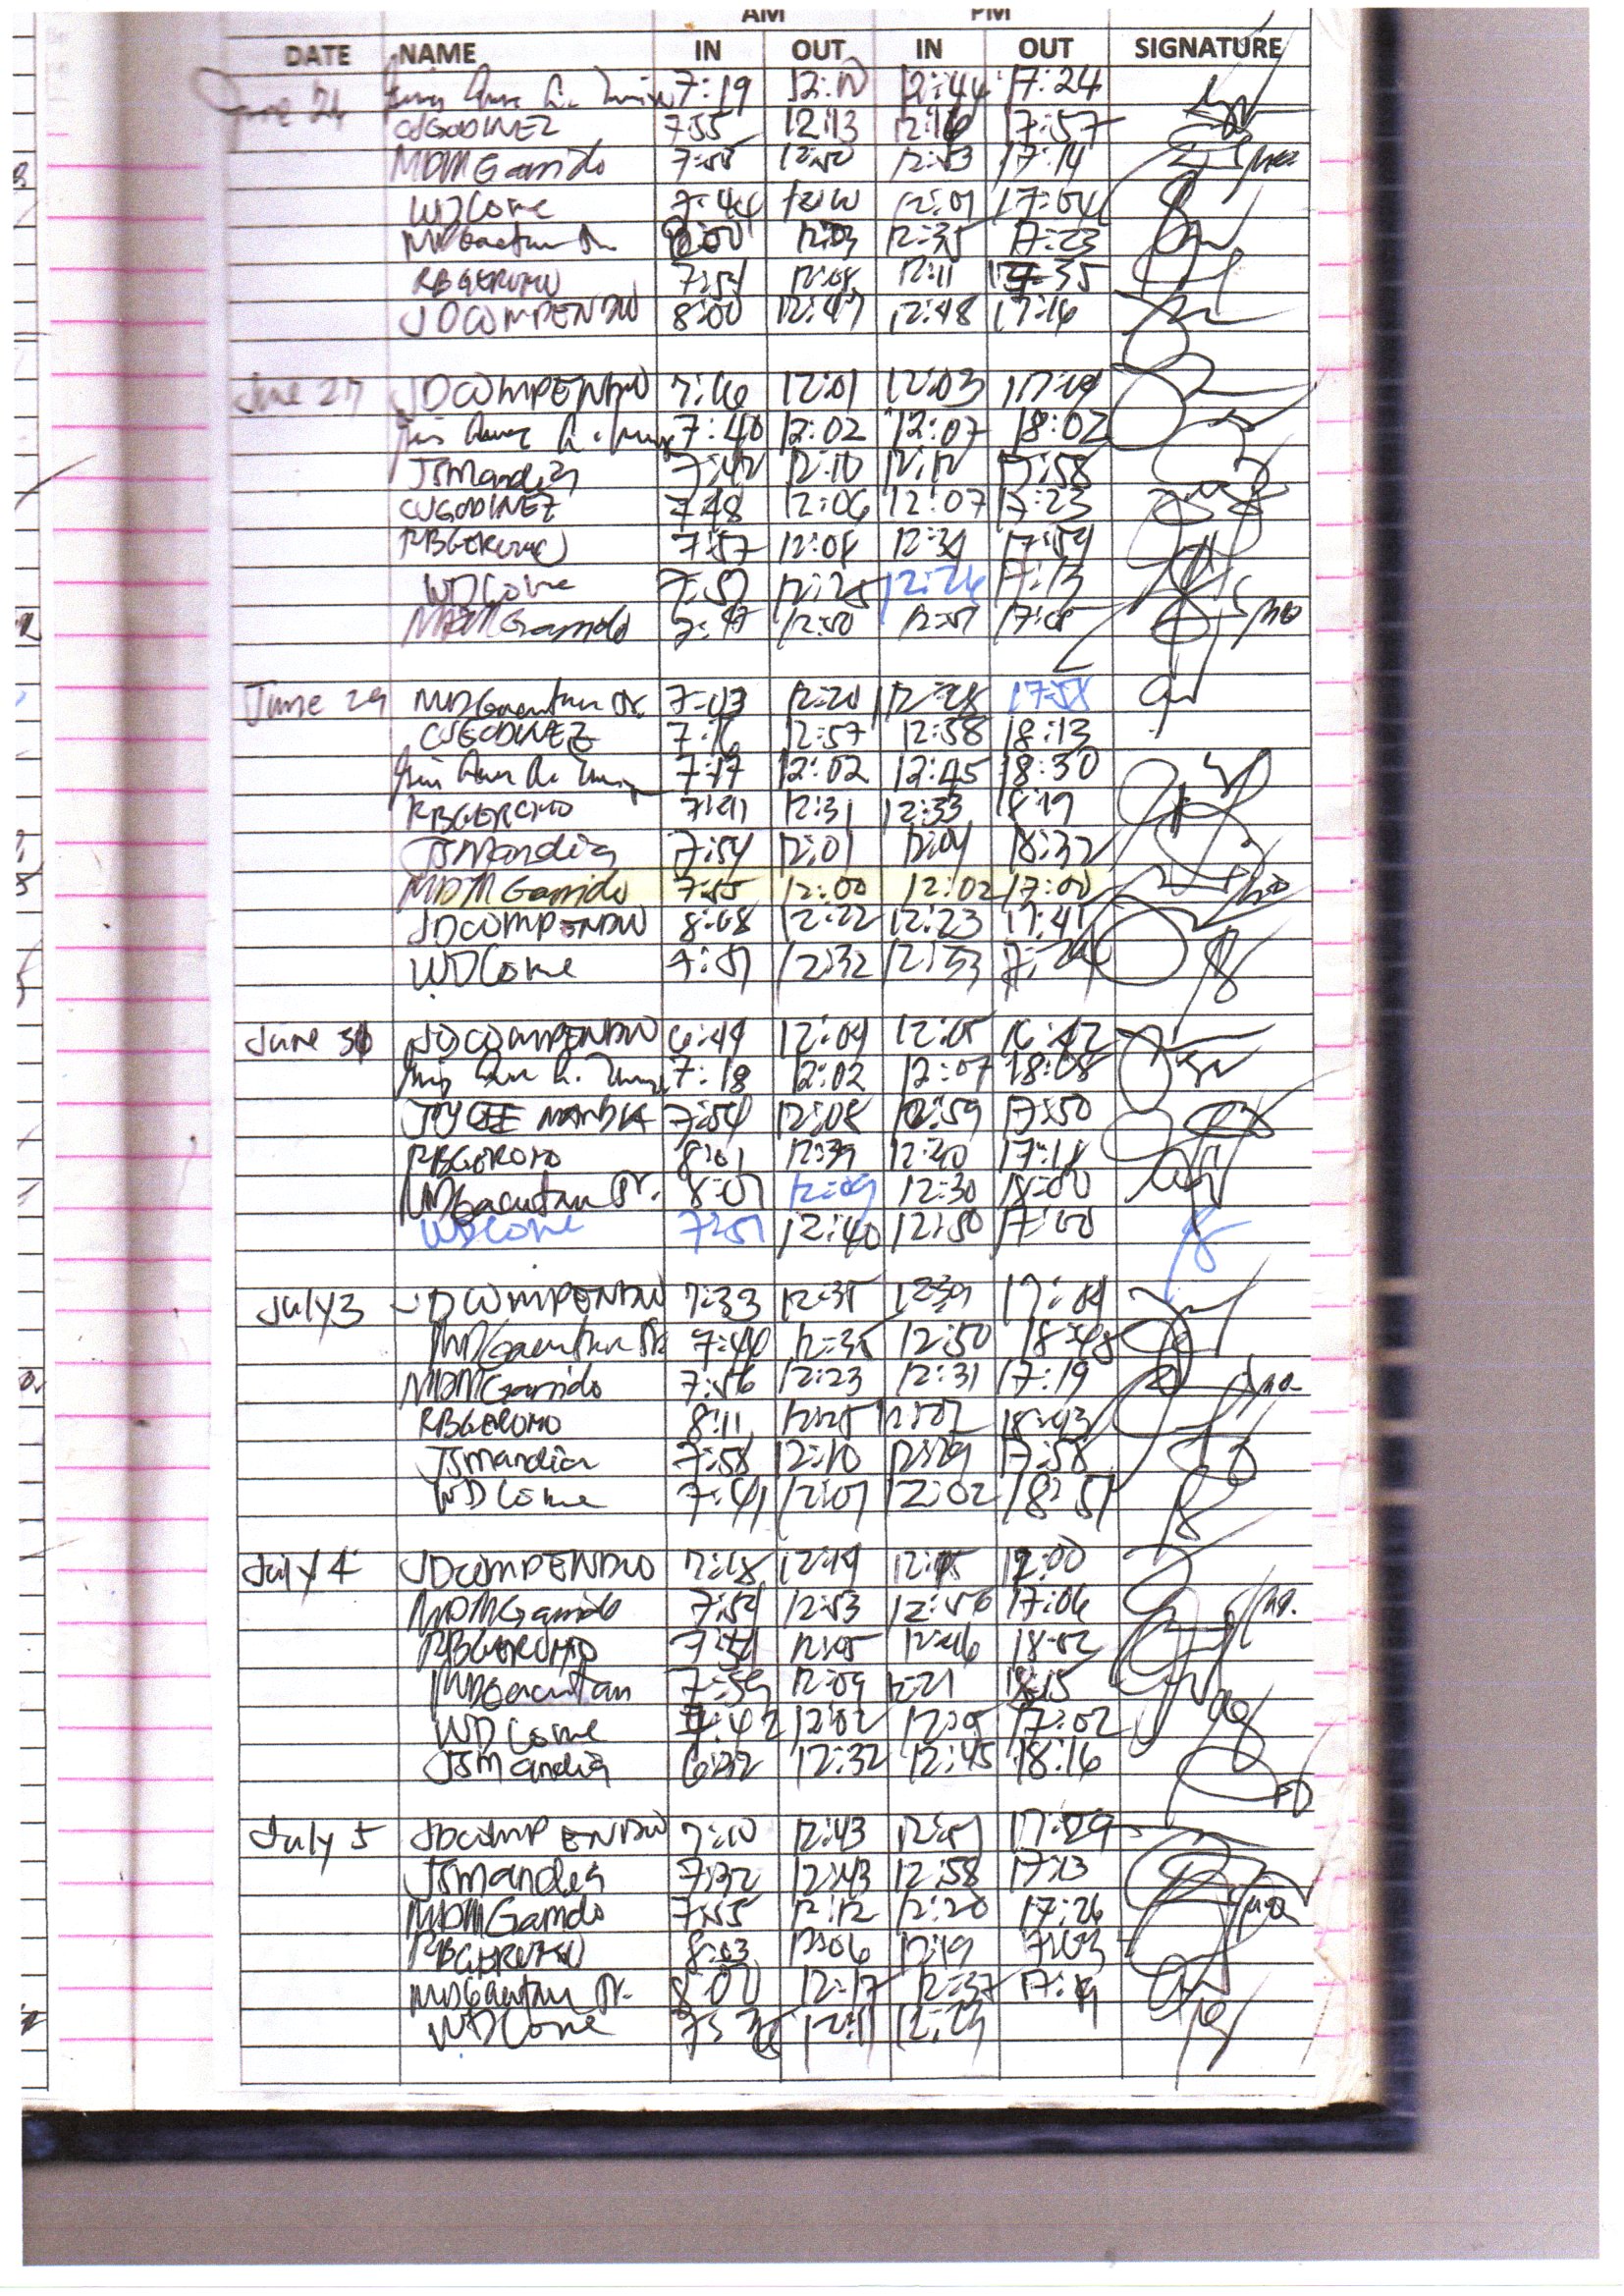 AM PM
DATE NAME IN OUT IN OUT SIGNATURE
June 7:19 12:10 12:44 17:24
CJGODINEZ 7:55 12:13 12:16 17:57
MDMGarrido 7:55 12:50 12:53 17:14
WDCone 7:44 12:00 12:01 17:04
MDGacutan Jr. 8:00 12:03 12:35 17:23
RBGEROMO 7:54 12:08 12:11 17:35
JDCOMPENDIO 8:00 12:47 12:48 17:16
June 27 JDCOMPENDIO 7:16 12:01 12:03
7:40 12:02 12:07 18:02
JSMandia 7:42 12:10 12:12 17:58
CJGODINEZ 7:48 12:06 12:07 17:23
RBGEROMO 7:57 12:08 17:54
WDCone 7:57 12:25 12:26 17:13
MDMGarrido 7:47 12:50 12:51 17:05
June 29 MDGacutan Jr. 7:03 12:20 12:28 17:58
CJGODINEZ 7:16 12:57 12:58 18:13
7:17 12:02 12:45 18:30
RBGEROMO 7:41 12:31 12:33 18:19
JSMandia 7:54 12:01 12:04 18:32
MDMGarrido 7:55 12:00 12:02 17:00
JDCOMPENDIO 8:08 12:22 12:23 17:41
WDCone 12:32 12:33
June 30 JDCOMPENDIO 6:49 12:04 12:05 16:42
7:18 12:02 12:07 18:08
JOYCEE MANDIA 7:54 12:08 12:59 17:50
RBGEROMO 8:01 12:39 12:40 17:18
MDGacutan Jr. 8:01 12:09 12:30 18:00
WDCone 7:51 12:40 12:50 17:00
July 3 JDCOMPENDIO 7:33 12:35 12:39 17:04
MDGacutan Jr. 7:40 12:35 12:50 18:48
MDMGarrido 7:56 12:23 12:31 17:19
RBGEROMO 8:11 12:25 12:27 18:43
JSMandia 7:58 12:10 12:29 17:58
WDCone 7:41 12:01 12:02 18:51
July 4 JDCOMPENDIO 7:18 12:14 12:15
MDMGarrido 7:54 12:53 12:56 17:06
RBGEROMO 7:54 12:05 12:46 18:02
MDGacutan 7:59 12:09 12:21 18:15
WDCone 7:42 12:02 12:05 17:02
JSMandia 6:32 12:32 12:45 18:16
July 5 JDCOMPENDIO 7:10 12:43 12:51 17:29
JSMandia 7:32 12:43 12:58 17:13
MDMGarrido 7:55 12:12 12:20 17:26
RBGEROMO 8:03 12:06 12:19 17:03
MDGacutan Jr. 8:00 12:17 12:37 17:19
WDCone 12:11 12:23